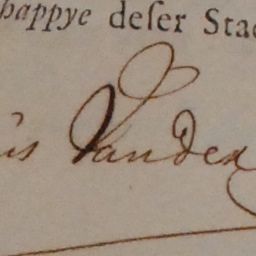 happye deſer Stad
us Vanden